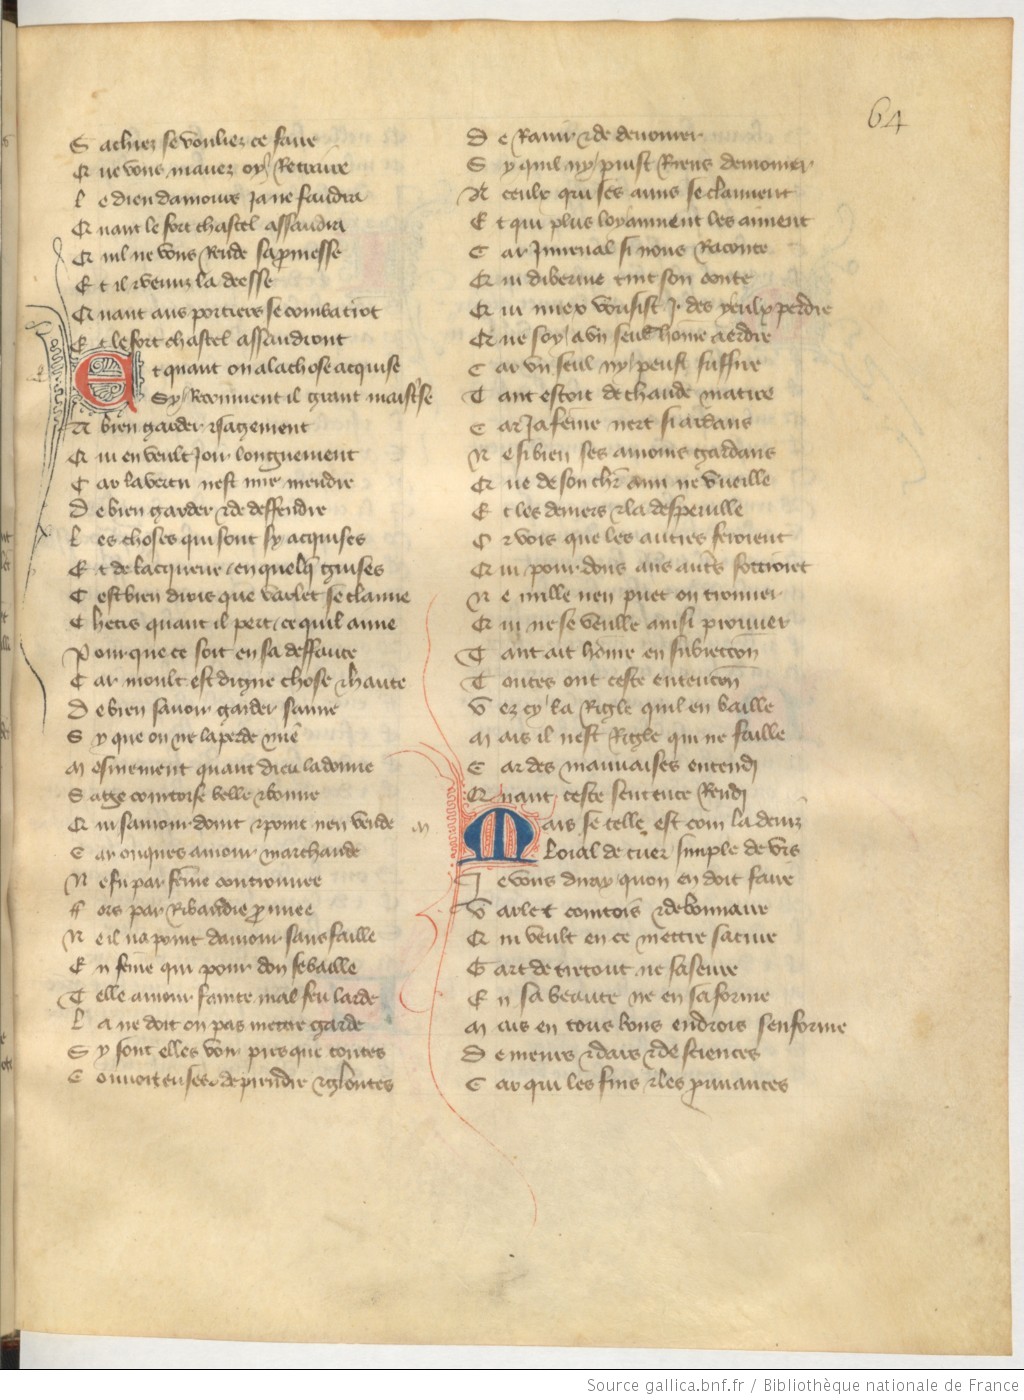 64
S achiez se vouliez ce faire
Q ue vous mauez oy Retraire
L e dieu damours Ja ne faudra
Q uant le fort chastel assaudra
Q uil ne vous Rende sa pmesse
E t il et venus la deesse
Q uant aus portiers se combatront
E t le fort chastel assaudront
E t quant on a la chose acquise
Sy Reconuient il grant maistse
A bien garder et sagement
Q ui en veult Joir longuement
C ar la vertu nest mie mendre
D e bien garder et de deffendre
L es choses qui sont sy acquises
E t de lacquerre en quelq guises
C est bien drois que varlet se claime
C hetis quant il pert ce quil aime
P our que ce soit en sa deffaute
C ar moult est digne chose et haute
D e bien sauoir garder samie
S y que on ne la perde mie
M esmement quant dieu la donne
S aige courtoise belle et bonne
Q ui samour doint et point nen vende
C ar onques amour marchande
N e fu par feme controuuee
F ors par Ribaudie prouuee
N e il na point damour sans faille
E n feme qui pour don se baille
T elle amour fainte mal feu larde
L a ne doit on pas mettre garde
S y sont elles voir pres que toutes
C ouuoiteuses de prendre et gloutes
D e Rauir et de deuourer
S y quil ny puist Riens demourer
A ceulx qui ses amis se claiment
E t qui plus loyaument les aiment
C ar Juuenal si nous Raconte
Q ui diberine tint son conte
Q ui miex vousist .j. des yeulx perdre
Q ue soy a vn seul home aerdre
C ar vn seul ny peust suffire
T ant estoit de chaude matire
C ar Ja feme nert si ardans
N e si bien ses amours gardans
Q ue de son chr ami ne vueille
E t les deniers et la despeuille
O r vois que les autres feroient
Q ui pour dons aus autrs sottroiet
N e nulle nen puet on trouuer
Q ui ne se veulle ainsi prouuer
T ant ait home en subiection
T outes ont ceste entencon
V ez cy la Rigle quil en baille
M ais il nest Rigle qui ne faille
C ar des mauuaises entendi
Q uant ceste sentence Rendi
M ais se telle est com la deuiz
Loial de cuer simple de vis
J e vous diray quon en doit faire
V arlet courtois et debonnaire
Q ui veult en ce mettre sa cure
G art de tretout ne saseure
E n sa beaute ne en sa forme
M ais en tous bons endrois senforme
D e meurs et dars et de sciences
C ar qui les fins et les prouuances
Source gallica.bnf.fr / Bibliothèque nationale de France